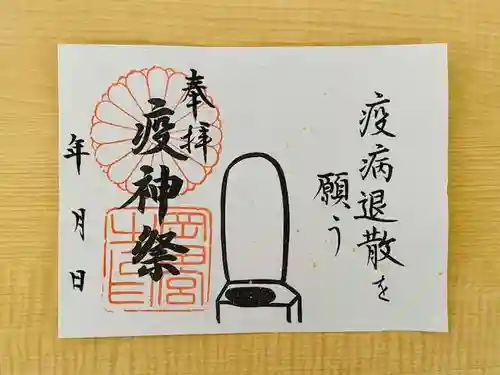 疫病退散を
願う
奉拝
疫神祭
年 月 日